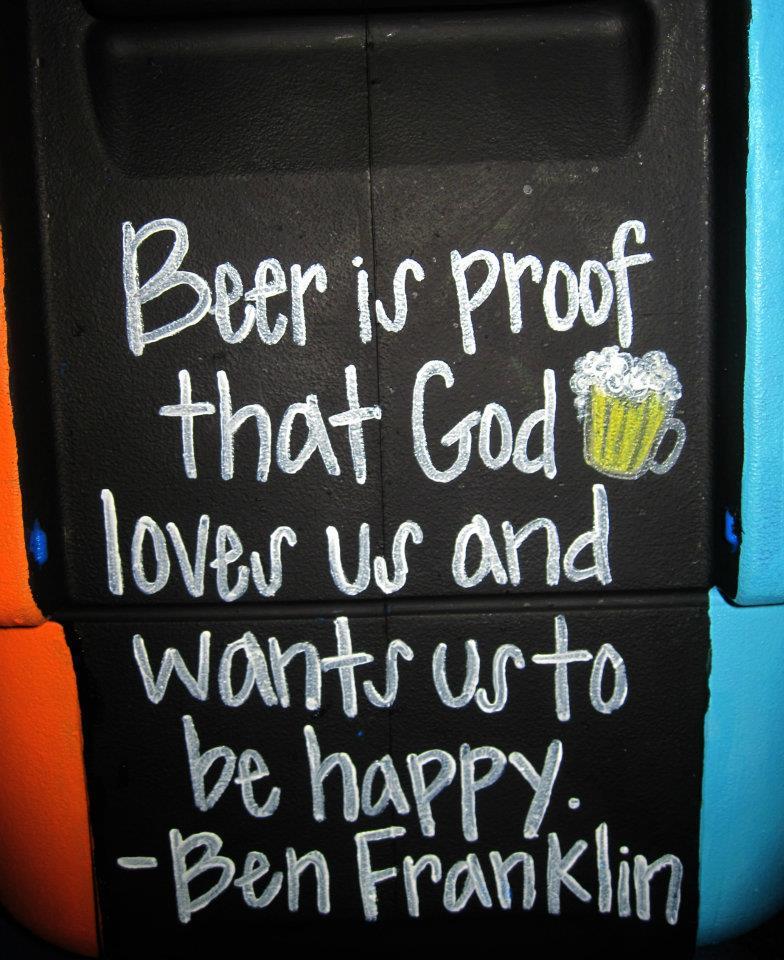 Beer is proof
that God
loves us and
wants us to
be happy.
-Ben Franklin